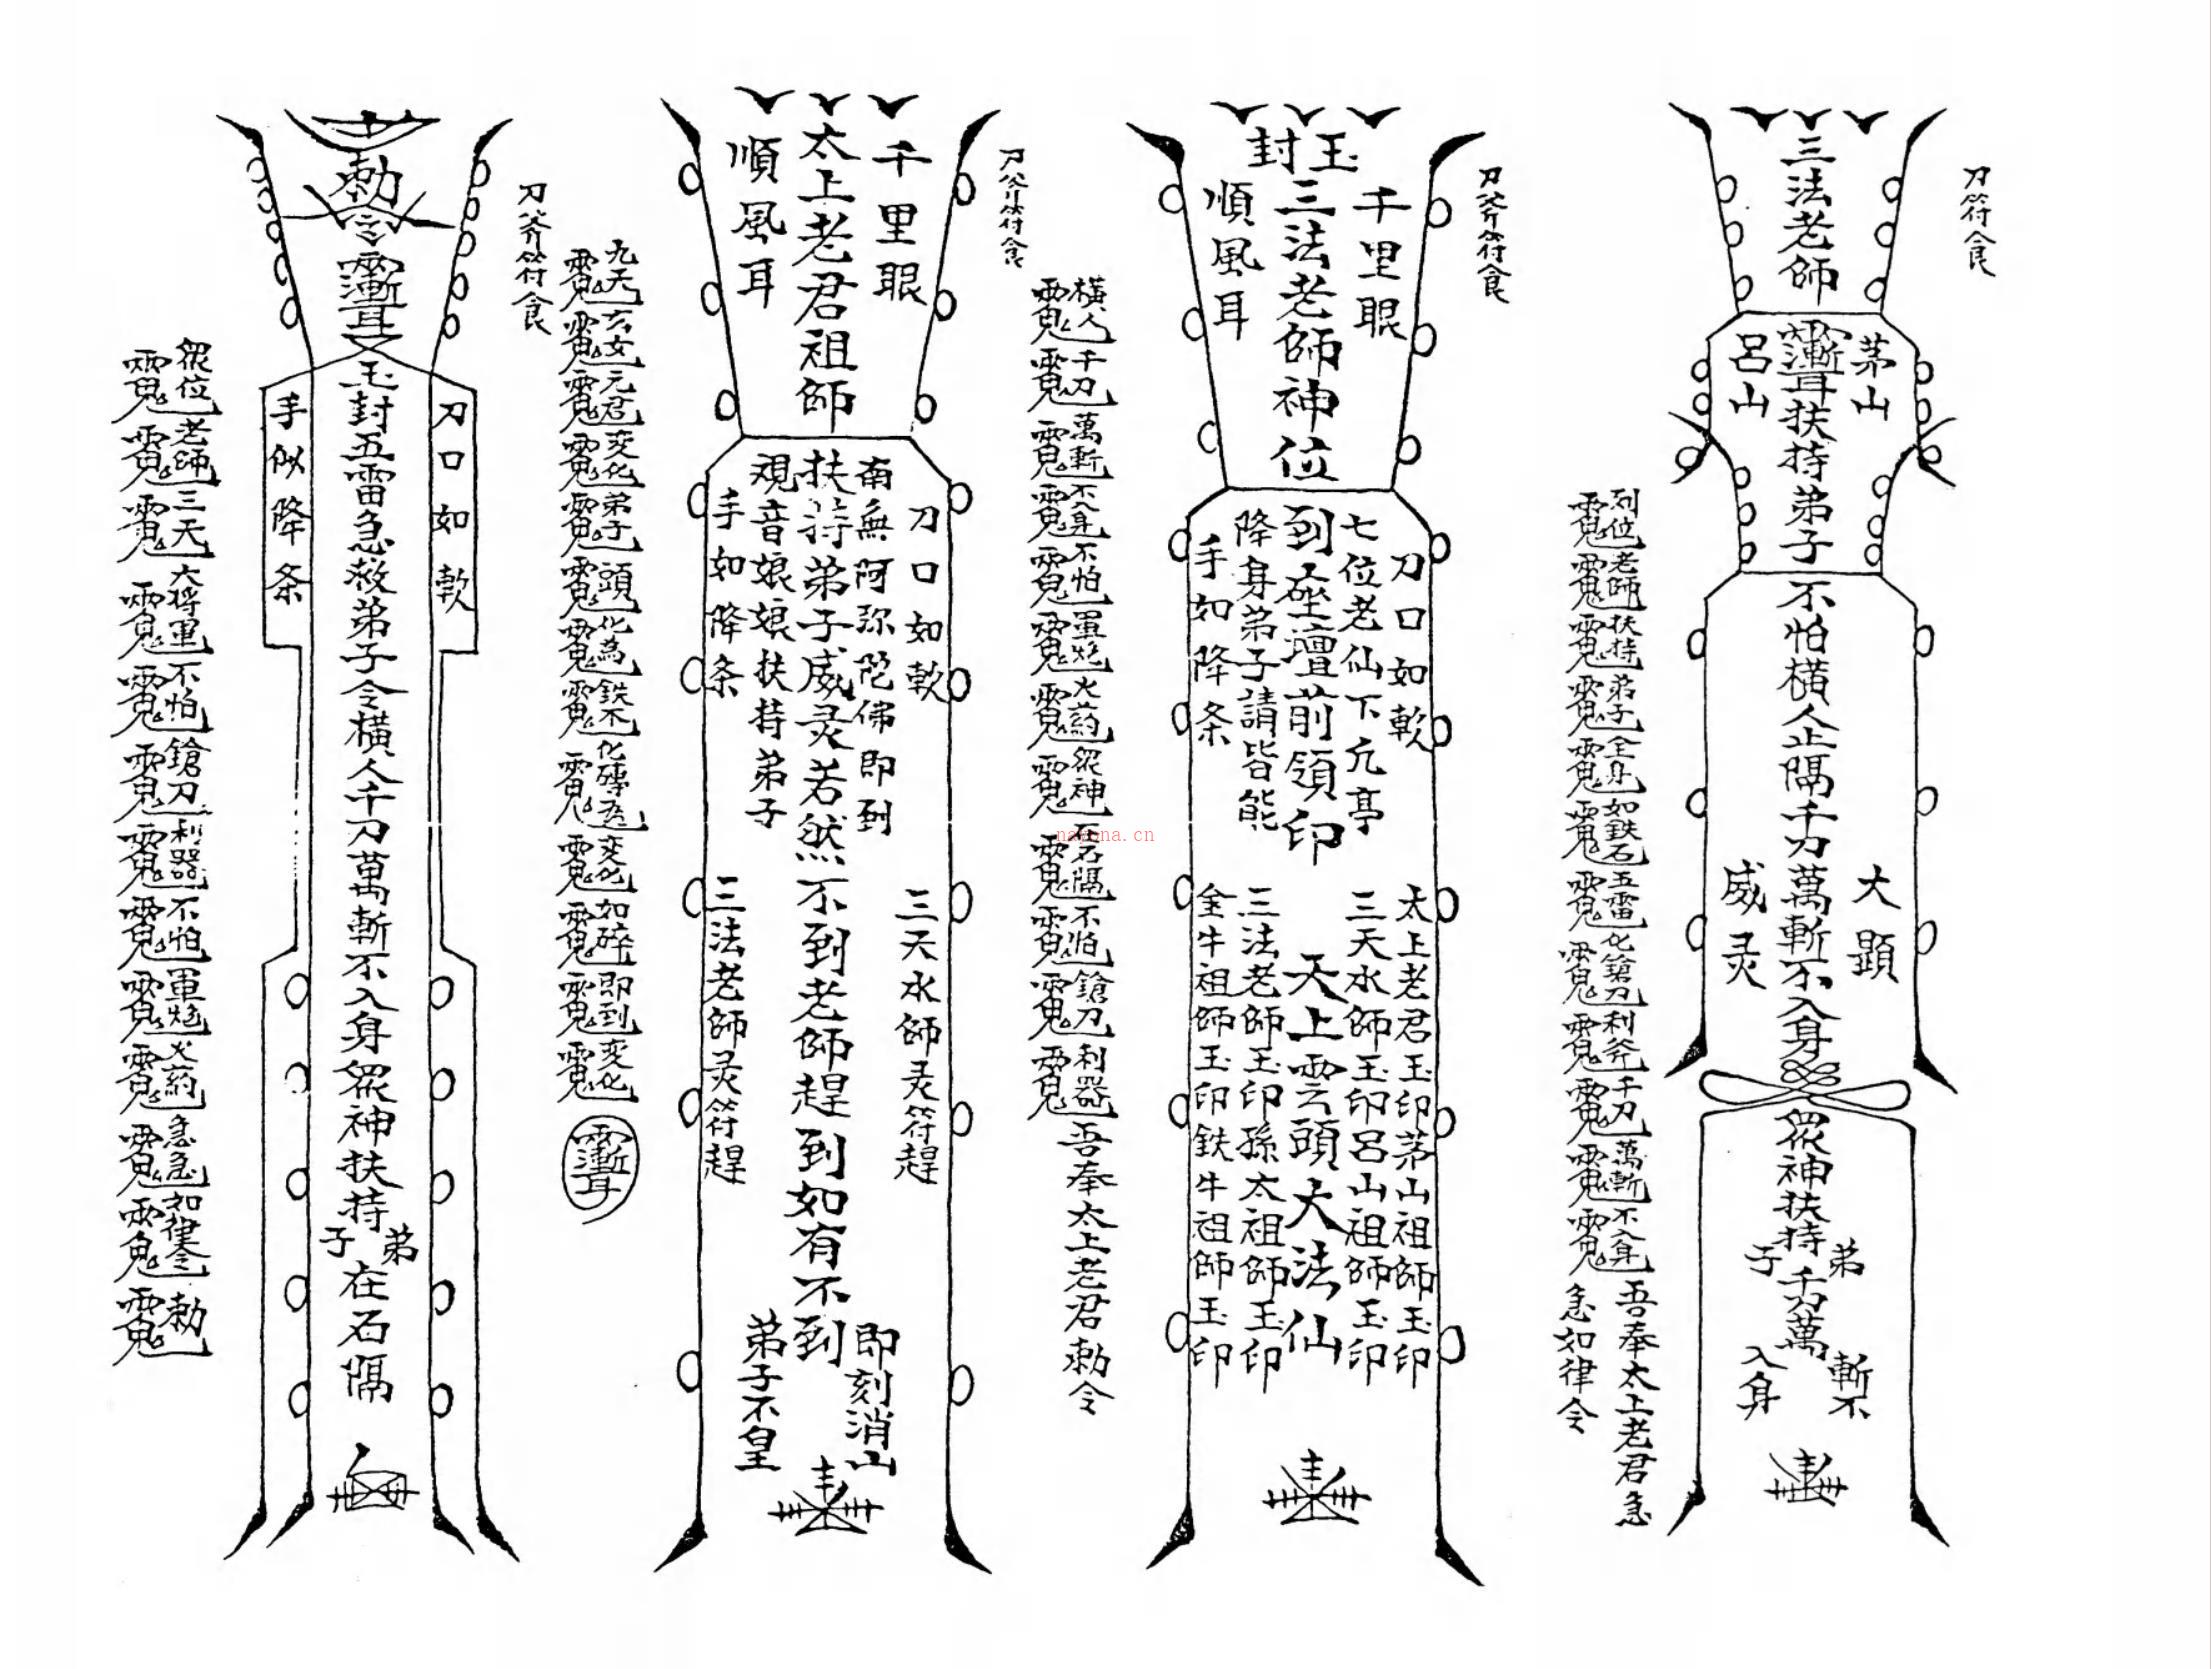 刀符食
三法老師
茅山
呂山
扶持弟子
不怕橫人止隔千刀萬斬不入身
大顯
威灵
眾神扶持
弟子
千刀萬
斬不
入身
列位老師扶持弟子全身如鉄石五雷化鎗刀利斧千刀萬斬不入身
吾奉太上老君急
急如律令
刀斧符食
玉封
三法老師神位
千里眼
順風耳
刀口如軟
七位老仙下亢亭
到座壇前領印
降身弟子請皆能
手如降条
太上老君玉印茅山祖師玉印
三天水師玉印呂山祖師玉印
天上雲頭大法仙
三法老師玉印孫太祖師玉印
金牛祖師玉印鉄牛祖師玉印
橫人千刀萬斬不入身不怕軍炮火葯眾神石隔不怕鎗刀利器
吾奉太上老君勅令
刀斧符食
千里眼
太上老君祖師
順風耳
刀口如軟
南無阿弥陀佛即到
扶持弟子威灵若然不到老師趕到如有不到
观音娘娘扶持弟子
手如降条
三天水師灵符趕
三法老師灵符趕
即刻消山
弟子不皇
九天玄女元君变化弟子頭化為鉄化磚瓦变化如碎即到变化
刀斧符食
勅令
玉封五雷急救弟子令橫人千刀萬斬不入身眾神扶持
弟子
在石隔
刀口如軟
手似降条
眾位老師三天大将軍不怕鎗刀利器不怕軍炮火葯急急如律令勅
nayona.cn